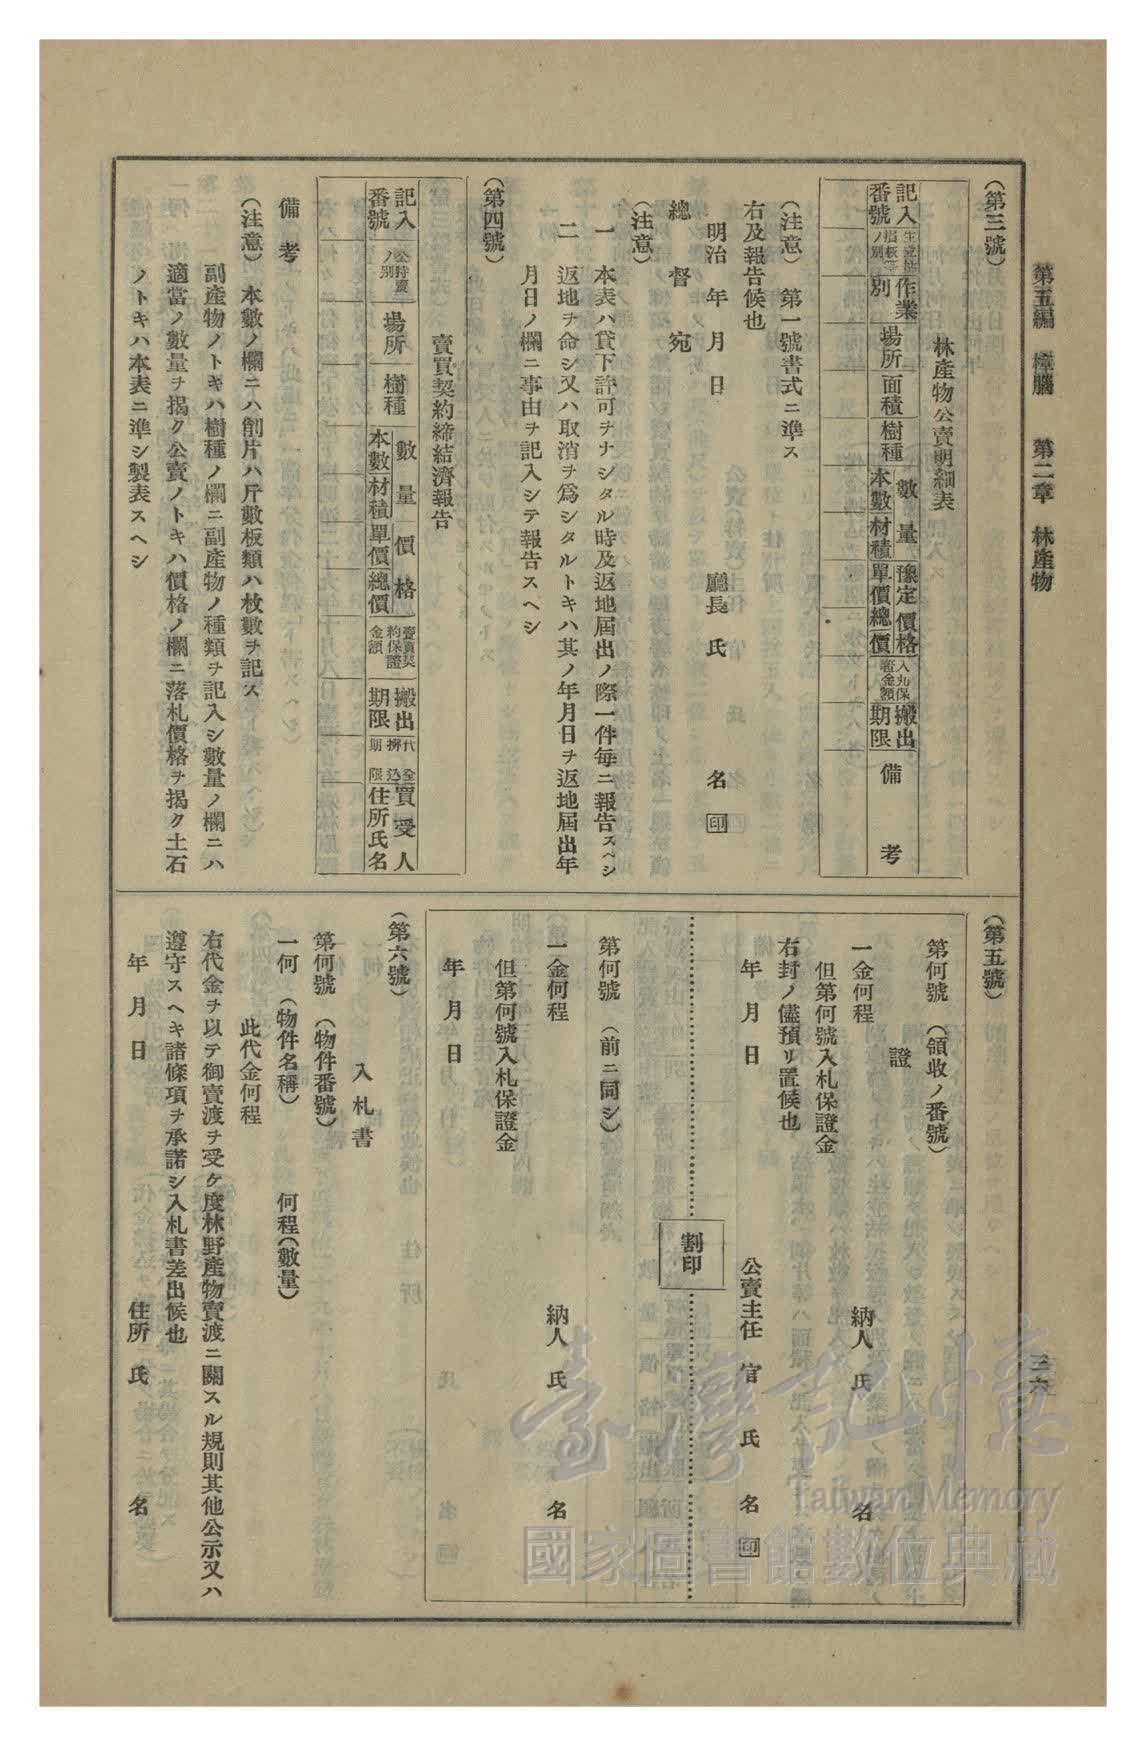 第五編　樟腦　　第二章　林産物
三六
（第三號）
林産物公賣明細表
記入番號
作業別
場所
面積
樹種
數量
本數
材積
豫定價格
單價
總價
入札保證金額
搬出期限
備　考
（注意）　第一號書式ニ準ス
右及報告候也
明治　年　月　日
廳長　氏　　　名　印
總　督　宛
（注意）
一　本表ハ貸下許可ヲナシタル時及返地屆出ノ際一件每ニ報告スベシ
二　返地ヲ命シ又ハ取消ヲ爲シタルトキハ其ノ年月日ヲ返地屆出年
月日ノ欄ニ事由ヲ記入シテ報告スヘシ
（第四號）
賣買契約締結濟報告
記入番號
公特賣ノ別
場所
樹種
數量
本數
材積
價格
單價
總價
賣買契約保證金額
搬出期限
代金拂込期限
買受人
住所氏名
備　考
（注意）　本數ノ欄ニハ削片ハ斤數板類ハ枚數ヲ記ス
副產物ノトキハ樹種ノ欄ニ副產物ノ種類ヲ記入シ數量ノ欄ニハ
適當ノ數量ヲ揭ク公賣ノトキハ價格ノ欄ニ落札價格ヲ揭ク土石
ノトキハ本表ニ準シ製表スヘシ
（第五號）
第何號　（領收ノ番號）
證
一金何程　　　　納人　氏　　　名
但第何號入札保證金
右封ノ儘預リ置候也
年　月　日　　　　公賣主任　官　氏　名　印
割印
第何號　（前ニ同シ）
一金何程　　　　納人　氏　　　名
但第何號入札保證金
年　月　日
（第六號）
入札書
第何號　（物件番號）
一何　（物件名稱）　　　何程（數量）
此代金何程
右代金ヲ以テ御賣渡ヲ受ケ度林野產物賣渡ニ關スル規則其他公示又ハ
遵守スヘキ諸條項ヲ承諾シ入札書差出候也
年　月　日　　　　住所　氏　　　名
臺灣記憶
Taiwan Memory
國家圖書館數位典藏